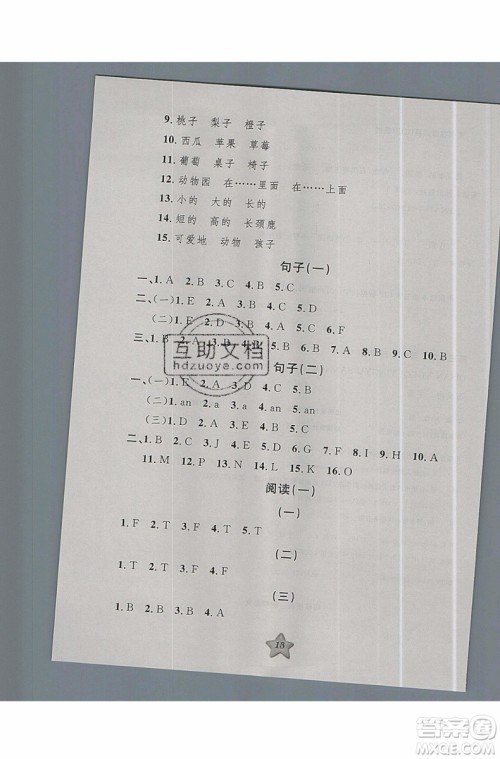 9.桃子 梨子 橙子
10.西瓜 苹果 草莓
11.葡萄 桌子 椅子
12.动物园 在……里面 在……上面
13.小的 大的 长的
14.短的 高的 长颈鹿
15.可爱地 动物 孩子
句子(一)
一、1.A 2.B 3.C 4.B 5.C
二、(一)1.E 2.A 3.B 4.C 5.D
(二)1.E 2.D 3.B 4.A 5.C 6.F
三、1.B 2.A 5.B 6.A 7.B 8.B 9.C 10.B
句子(二)
一、(一)1.E 2.A 3.D 4.C 5.B
(二)1.an 2.a 3.a 4.an 5.an
(三)1.D 2.A 3.E 4.C 5.B
二、1.B 2.C 3.J 4.E 5.G 6.D 7.F 8.I 9.H 10.A
11.M 12.P 13.N 14.L 15.K 16.O
阅读(一)
(一)
1.F 2.T 3.F 4.T 5.T
(二)
1.T 2.F 3.T 4.F
(三)
1.B 2.B 3.B 4.A
18
互助文档
hdzuoye.com
答案圈
MXQE.COM